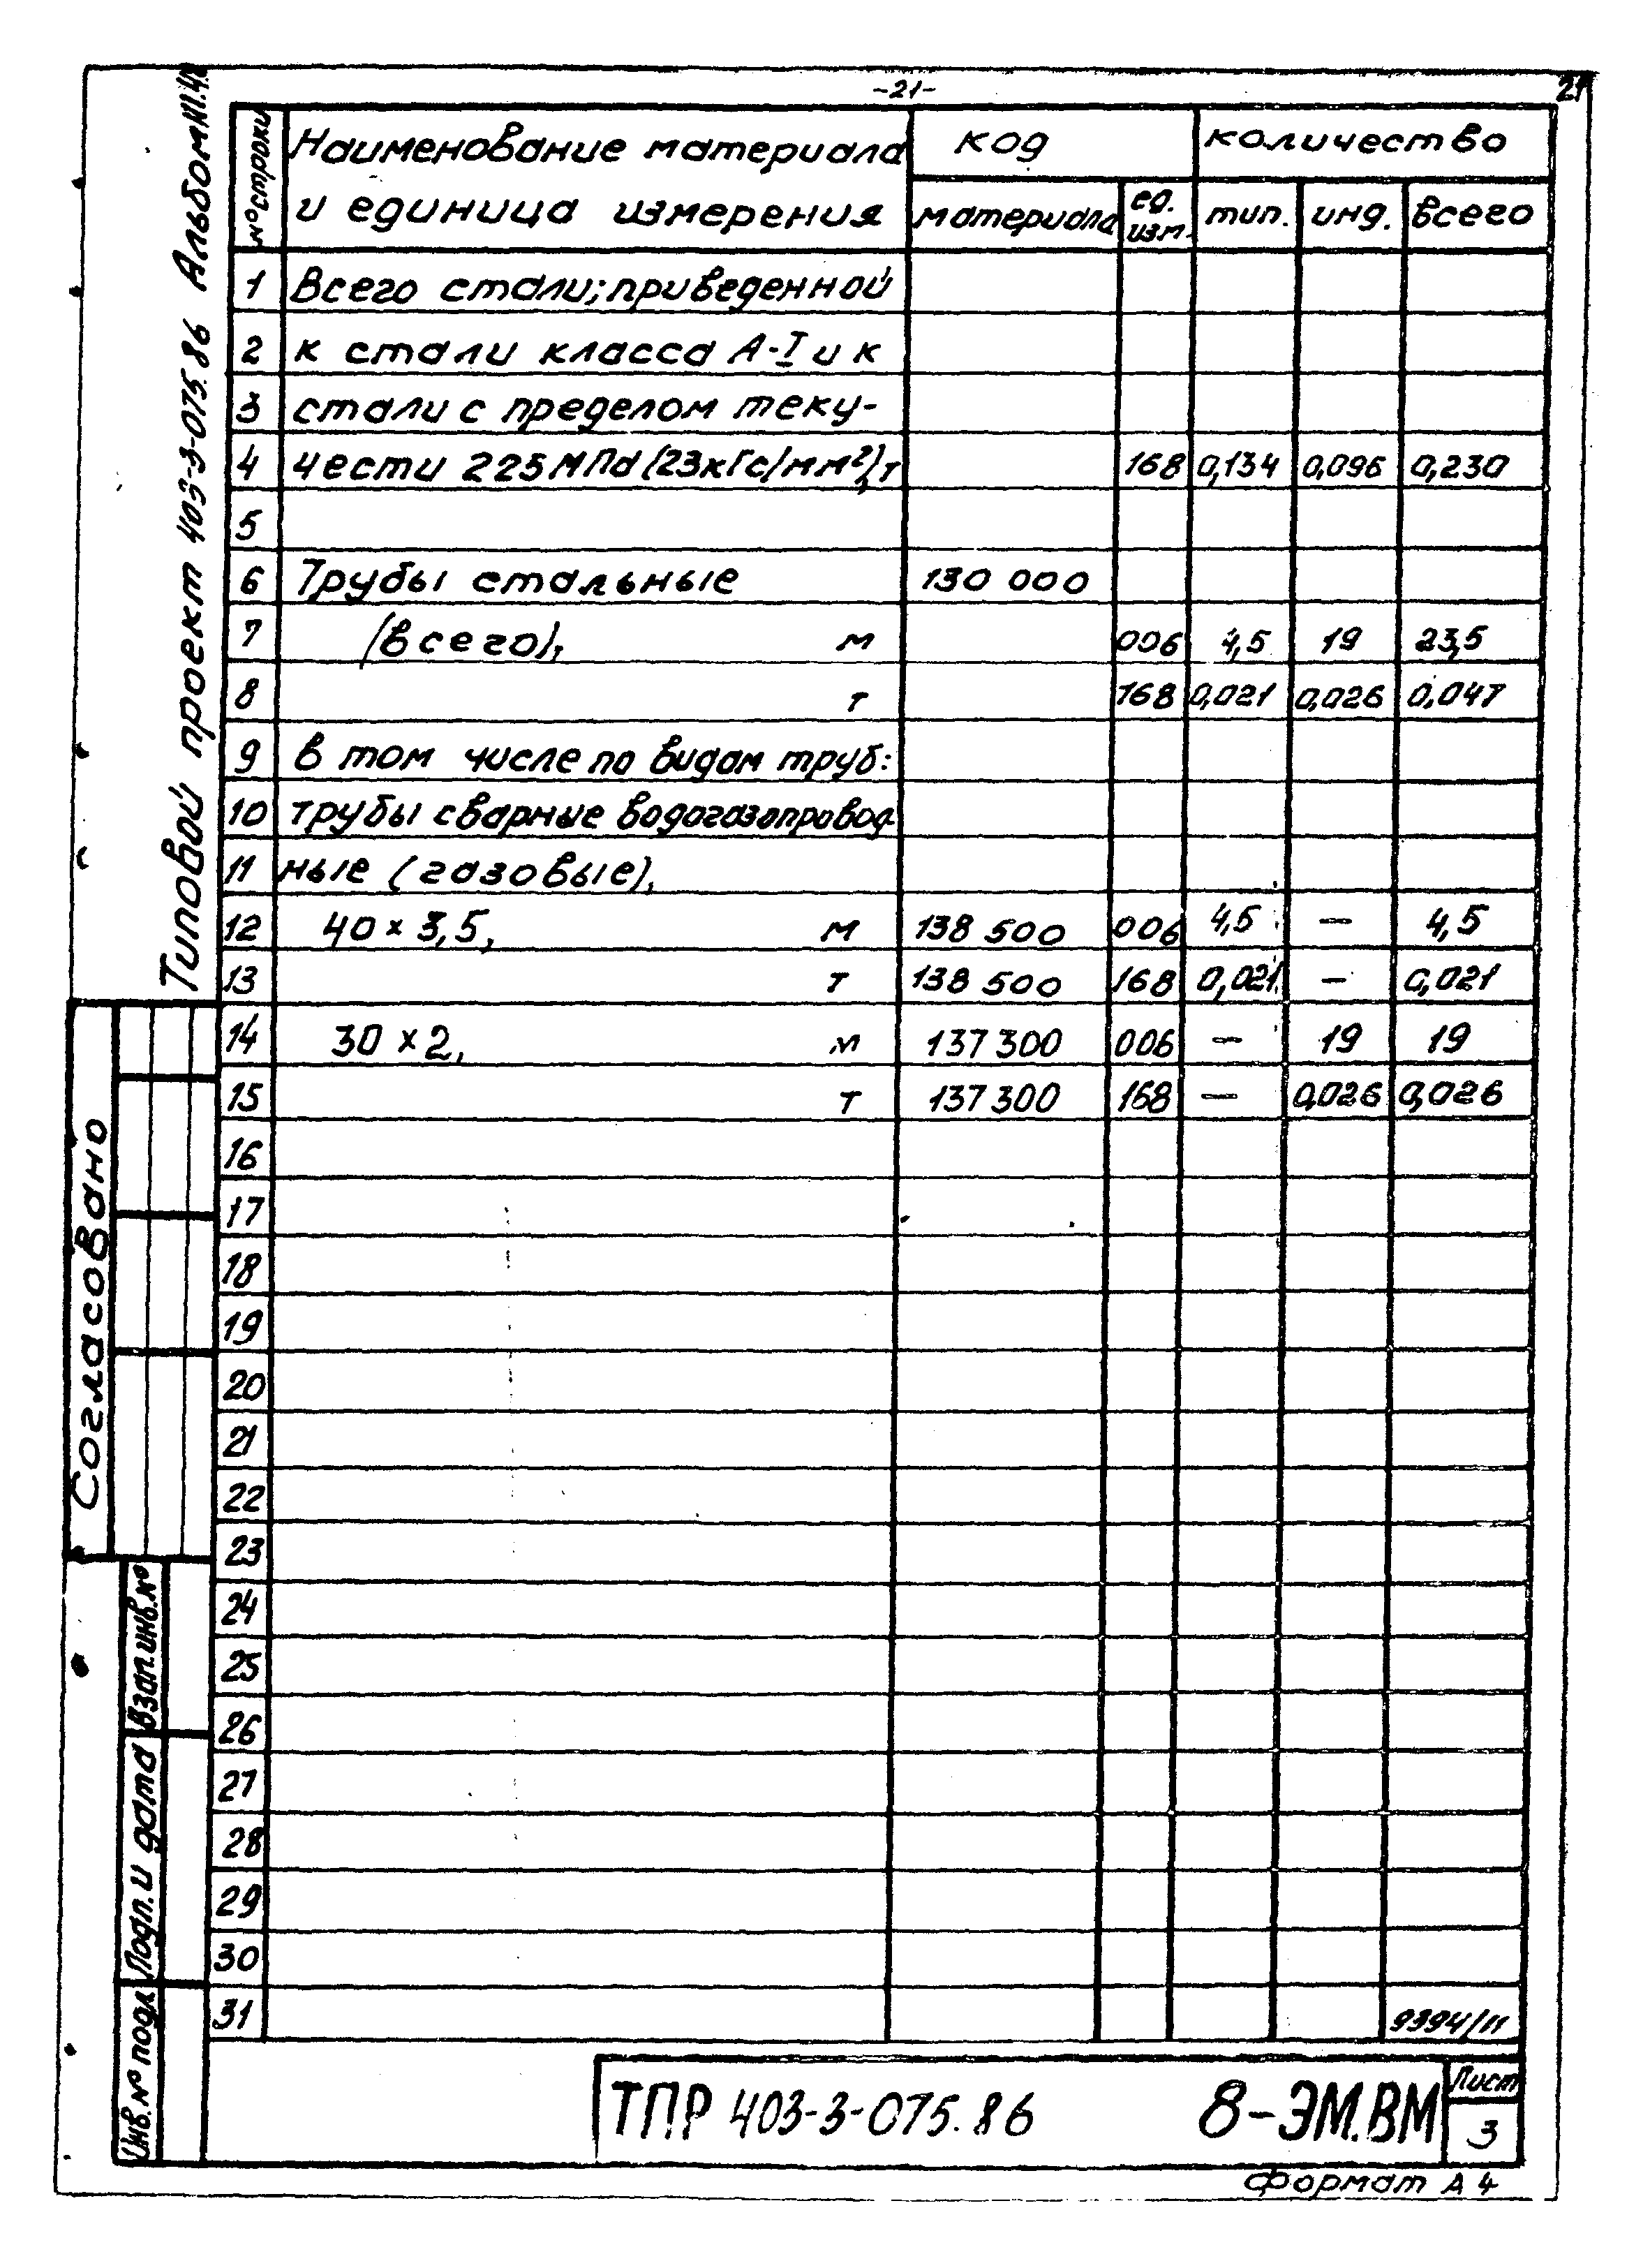 -21-
21
Типовой проект 403-3-075.86 Альбом
№ строки
Наименование материала
и единица измерения
код
количество
материала
ед.
изм.
тип.
инд.
всего
1 Всего стали; приведенной
2 к стали класса А-I и к
3 стали с пределом теку-
4 чести 225 МПа (23кГс/мм²), т 168 0,134 0,096 0,230
5
6 Трубы стальные 130 000
7 (всего), м 006 4,5 19 23,5
8 т 168 0,021 0,026 0,047
9 в том числе по видам труб:
10 трубы сварные водогазопровод
11 ные (газовые),
12 40 × 3,5, м 138 500 006 4,5 — 4,5
13 т 138 500 168 0,021 — 0,021
14 30 × 2, м 137 300 006 — 19 19
15 т 137 300 168 — 0,026 0,026
16
17
18
19
20
21
22
23
24
25
26
27
28
29
30
31 9394/11
Согласовано
Взап. инв. №
Подп. и дата
Инв. № подл
ТПР 403-3-075.86
8-ЭМ.ВМ
Лист
3
Формат А4